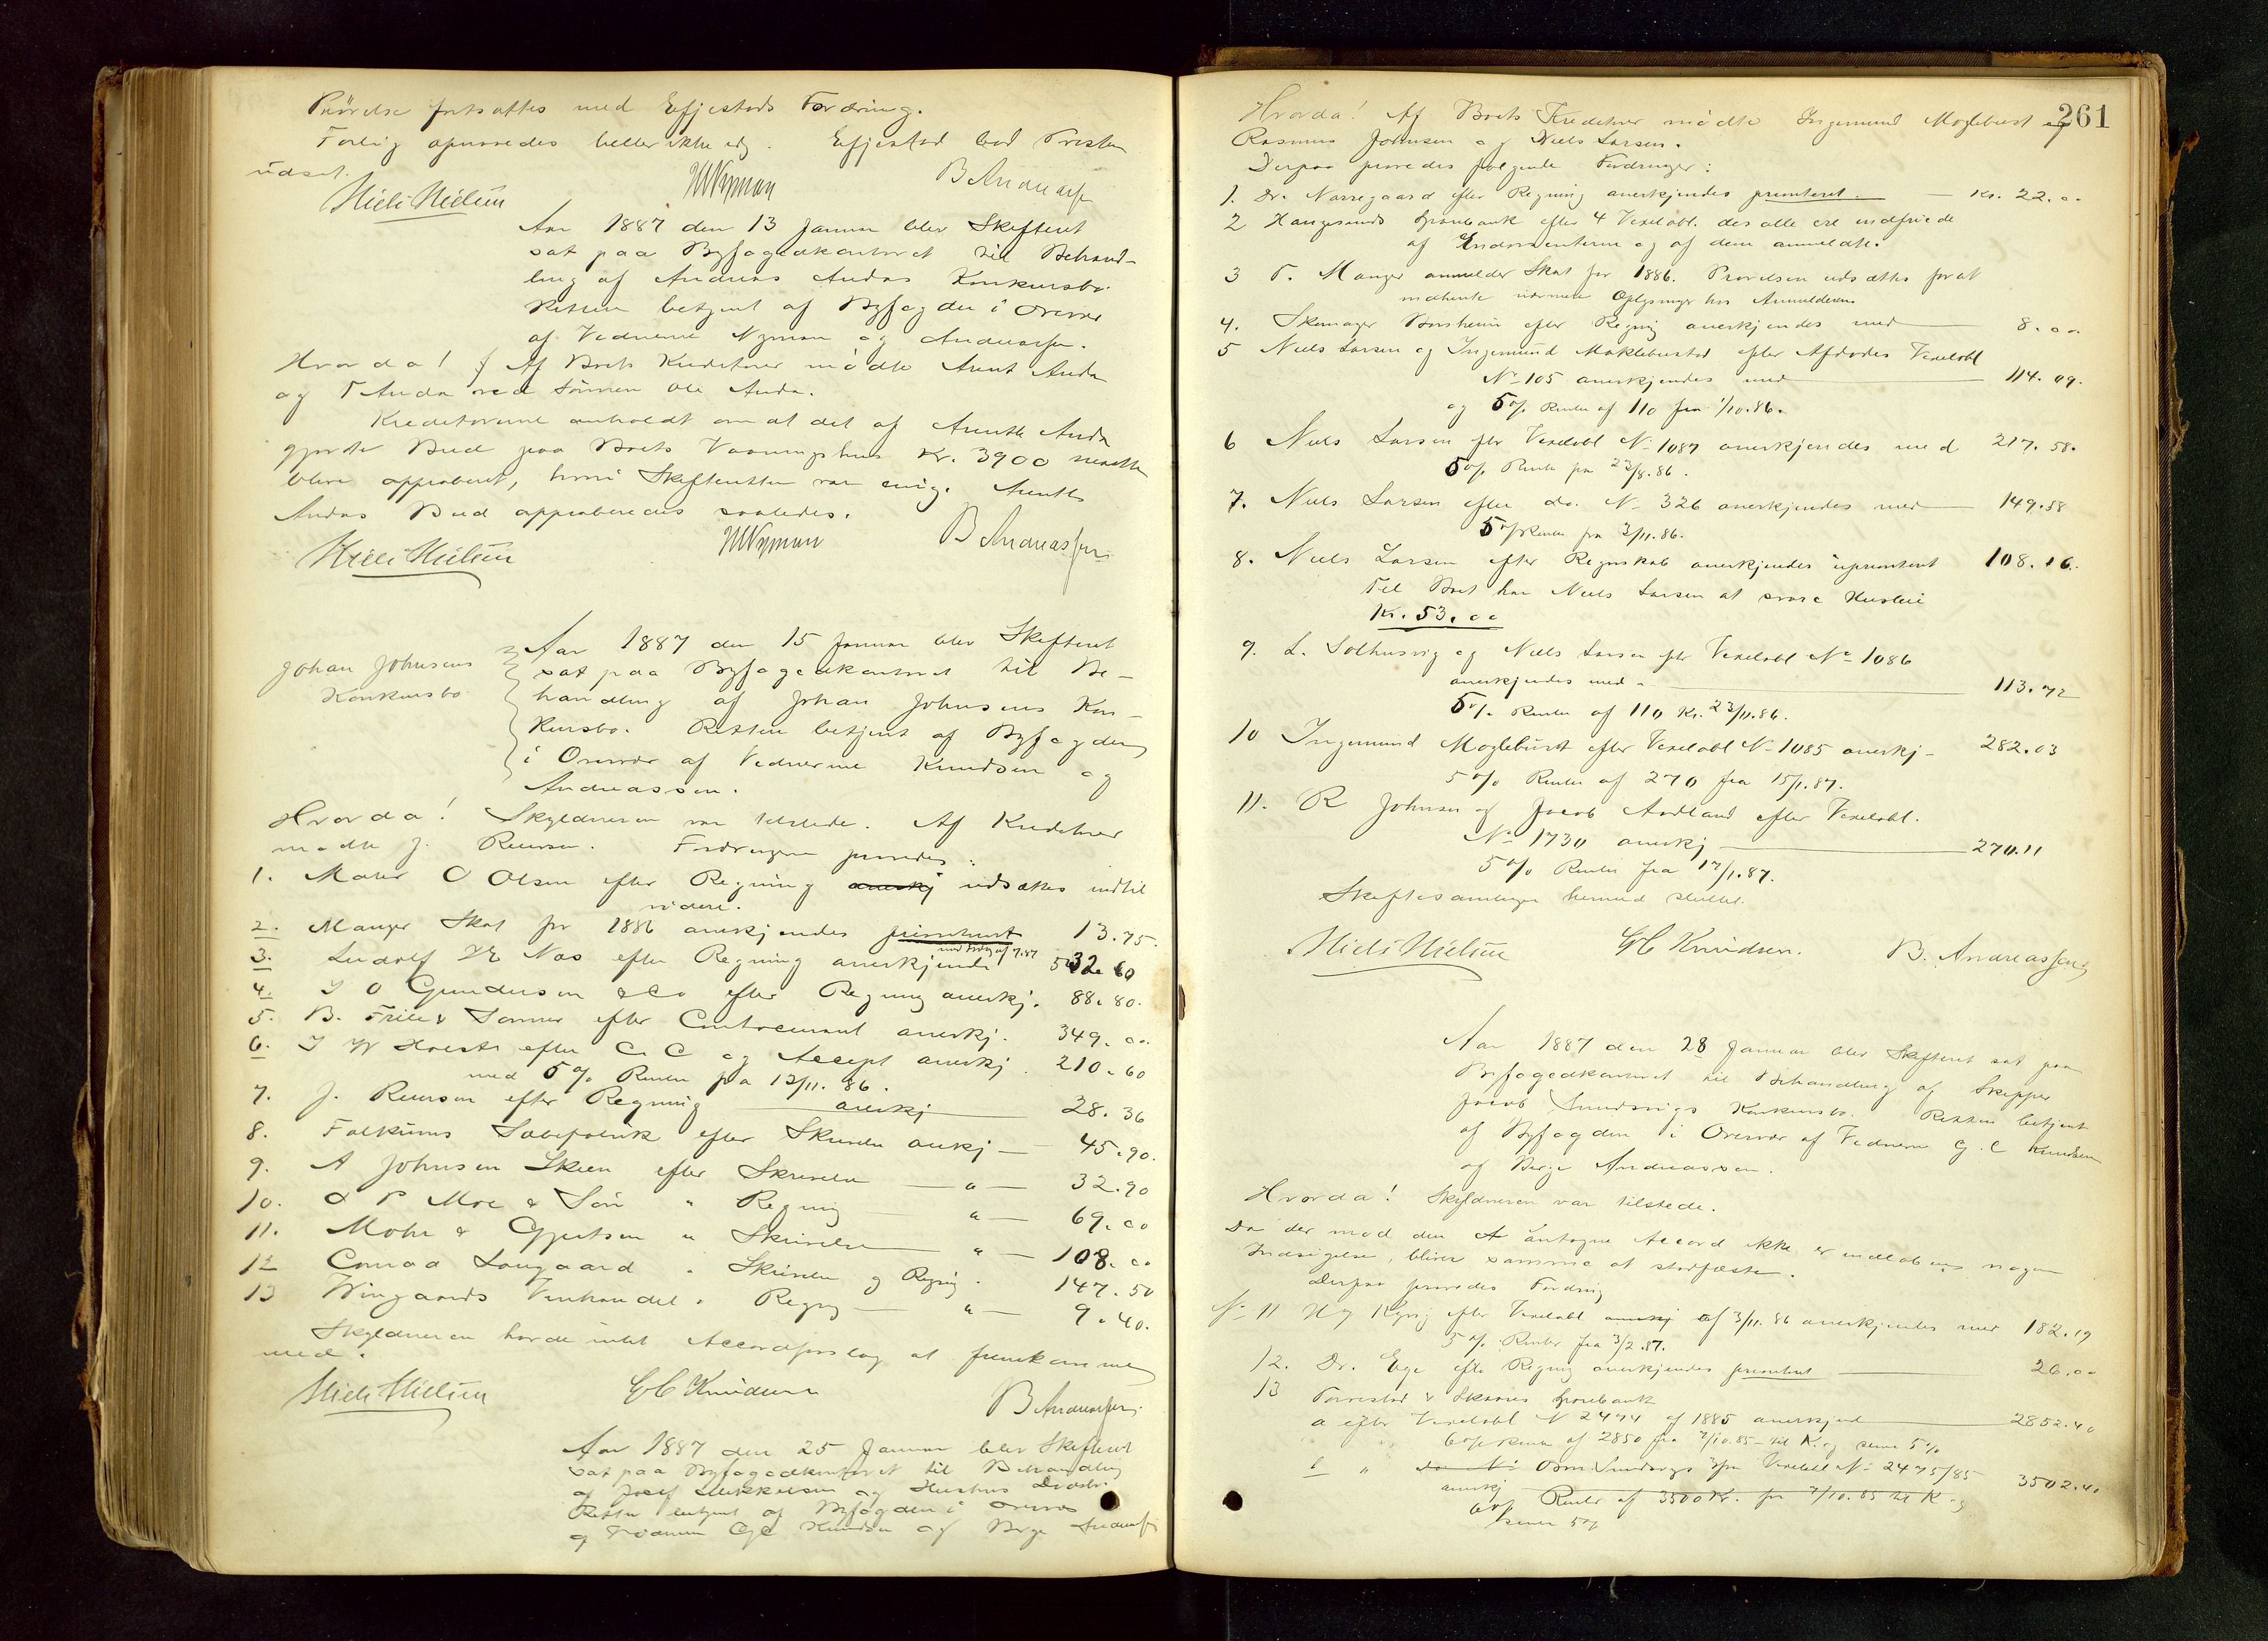 Prövelse fortsattes med EFjestads Fordring.
Forlig opnaaedes heller ikke og. Efjestad bad Fristen
udsat.
Niels Nielsen HNyman B Andreassen
Aar 1887 den 13 Januar blev Skifteret
sat paa Byfogedkontoret til Behand-
ling af Andreas Andas Konkursbo.
Retten betjent af Byfogden i Overvær
af Vidnerne Nyman og Andreassen.
Hvorda! Af Boets Kreditorer mödte Arent Anda
og T Anda ved Sönnen Ole Anda.
Kreditorerne anholdt om at det af Arent Anda
gjorte Bud paa Boets Vaaningshus Kr. 3900 maatte
blive approberet, hvori Skifteretten var enig. Arent
Andas Bud approberedes saaledes.
Niels Nielsen HNyman B Andreassen
Johan Johnsens
Konkursbo
Aar 1887 den 15 Januar blev Skifteret
sat paa Byfogedkontoret til Be-
handling af Johan Johnsens Kon-
kursbo. Retten betjent af Byfogden
i Overvær af Vidnerne Knudsen og
Andreassen.
Hvorda! Skyldneren var tilstede. Af Kreditorer
mödte J. Reiersen. Fordringerne prövedes:
1. Maler O Olsen efter Regning anerkj udsættes indtil
videre.
2. Manger Skat for 1886 anerkjendes prioriteret 13.75.
3. Ludolf Næs efter Regning anerkjendes 32.60
4. I O Gundersen & Co efter Regning anerkj. 88.80.
5. B. Friele & Sønner efter Contocurant anerkj. 349.00
6. I W Holst efter C. C og Accept anerkj. 210.60
med 5% Renter fra 12/11.86.
7. J. Reiersen efter Regning anerkj 28.36
8. Falkums Sæbefabrik efter Skrivelse ankj — 45.90.
9. A Johnsen Skien efter Skrivelse — " — 32.90
10. O P Moe & Sön " Regning " — 69.00
11. Mohr & Gjertsen " Skrivelse " — 108.00
12 Conrad Langaard " Skrivelse og Regning. 147.50
13 Wingaards Vinhandel " Regng — " — 9.40.
Skyldneren havde intet Accordforslag at fremkomme
med.
Niels Nielsen GC Knudsen B Andreassen
Aar 1887 den 25 Januar blev Skifteret
sat paa Byfogedkontoret til Behandling
af Josef Mikkelsen og Hustrus Dødsbo.
Retten betjent af Byfogden i Overvær
af Vidnerne GC Knudsen og Berge Andreassen
261
Hvorda! Af Boets Kreditorer mödte Ingemund Møglebust og
Rasmus Johnsen og Niels Larsen.
Derpaa prövedes følgende Fordringer:
1. Dr. Nørregaard efter Regning anerkjendes prioriteret. — Kr. 22.00
2 Haugesunds Sparebank efter 4 Vexelobl. der alle ere indfriede
af Endossenterne og af dem anmeldte.
3 T. Manger anmelder Skat for 1886. Prövelsen udsættes for at
indhente nærmere Oplysninger hos Anmelderen
4. Skomager Borsheim efter Regning anerkjendes med 8.00
5 Niels Larsen og Ingemund Møklebustad efter Afdødes Vexelobl
No 105 anerkjendes med 114.09.
og 5% Renter af 110 fra 1/10.86.
6 Niels Larsen eftr Vexelobl No 1087 anerkjendes med 217.58.
5% Rente fra 22/8.86.
7. Niels Larsen efter do. No 326 anerkjendes med 149.58
5% Renter fra 2/11.86.
8. Niels Larsen efter Regnskab anerkjendes uprioriteret 108.16.
Til Boet har Niels Larsen at svare Husleie
Kr. 53.00
9. L. Solhusvig og Niels Larsen eftr Vexelobl No 1086
anerkjendes med 113.72
5% Renter af 110 Kr. 23/11.86.
10 Ingemund Møglebust efter Vexelobl No 1085 anerkj — 282.03
5% Renter af 270 fra 15/1.87.
11. R Johnsen og Jacob Aadland efter Vexelobl.
No 1730 anerkj — 270.11
5% Renter fra 17/1.87.
Skiftesamlingen hermed sluttet.
Niels Nielsen GC Knudsen. B. Andreassen
Aar 1887 den 28 Januar blev Skifteret sat paa
Byfogedkontoret til Behandling af Skipper
Jacob Sundsvigs Konkursbo. Retten betjent
af Byfogden i Overvær af Vidnerne G. C Knudsen
og Berge Andreassen.
Hvorda! Skyldneren var tilstede.
Da der mod den antagne Accord ikke er indløbens nogen
Indsigelse, bliver samme at stadfæste.
Derpaa prövedes Fordring
No 11 efter Vexelobl anerkj af 3/11.86 anerkjendes med 182.19
5% Renter fra 3/2.87.
12. Dr. Ege efter Regning anerkjendes prioriteret 26.00
13 Torvestad & Skaares Sparebank
a efter Vexelobl No 2474 af 1885 anerkjend 2852.40
6% Rente af 2850 fra 7/10.85 — til K. og senere 5%
b " do No Vexelobl No 2475/85
anerkj 3502.40
6% Renter af 3500 Kr. fra 7/10.85 til K. og
senere 5%